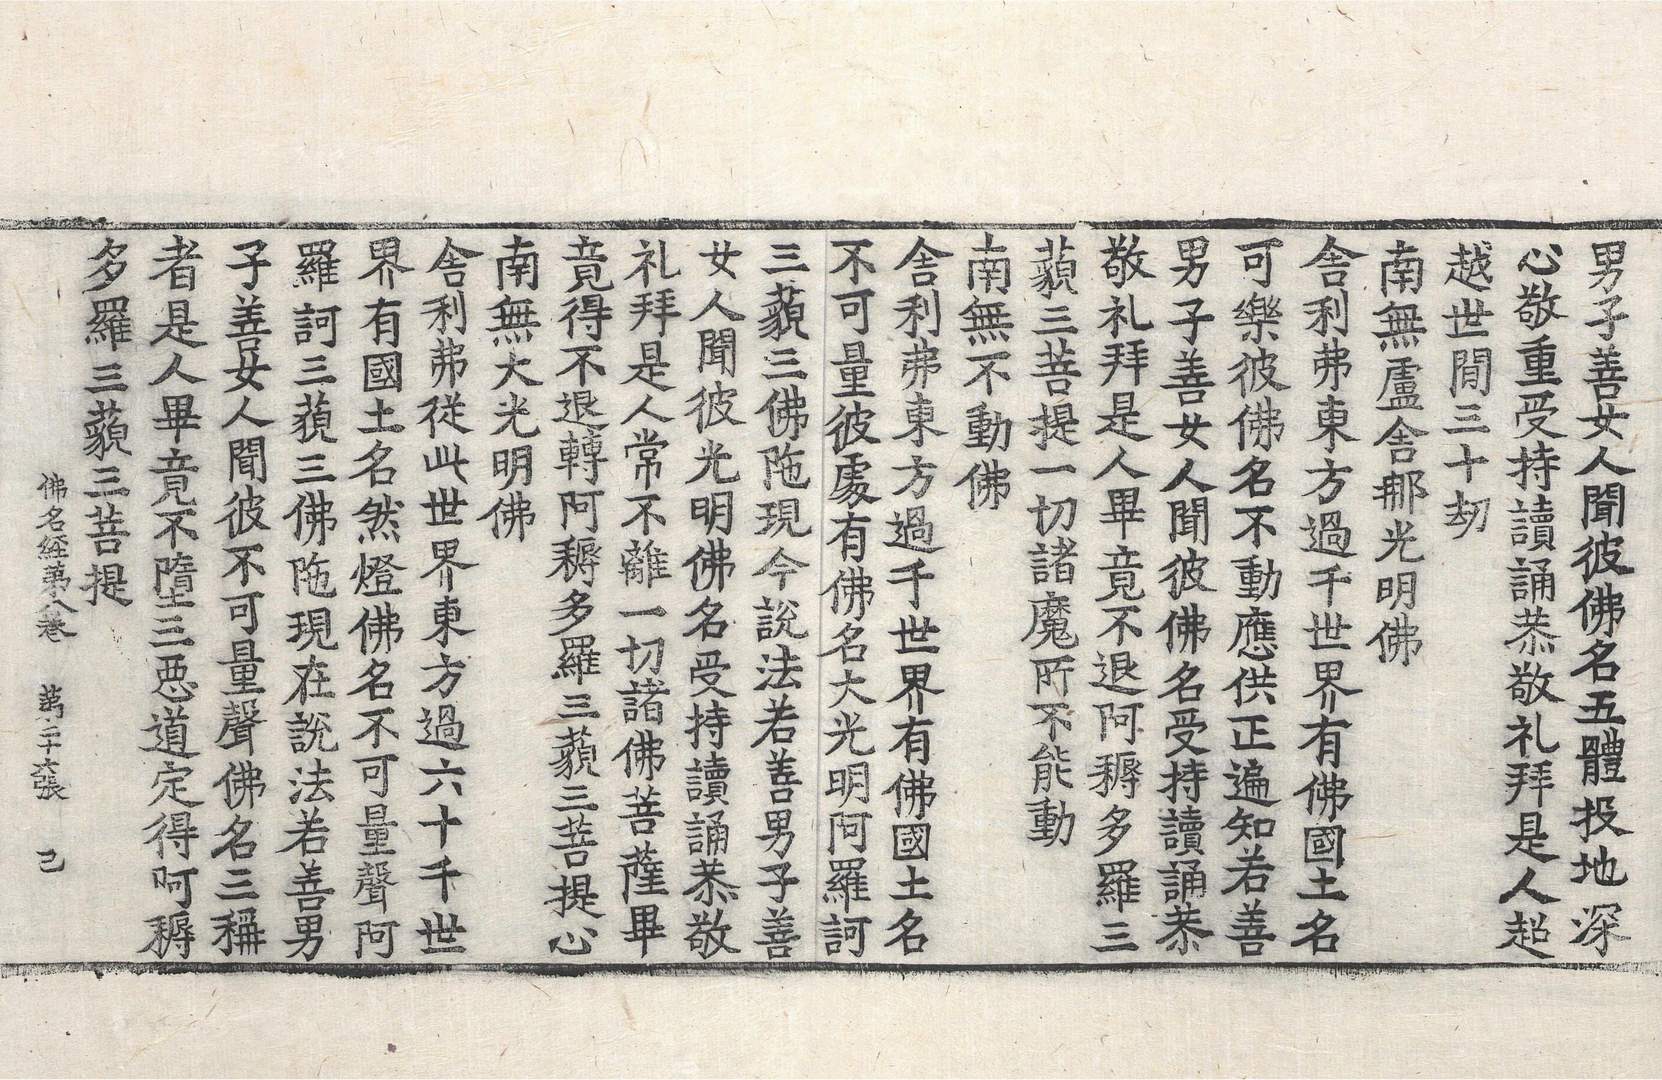 男子善女人聞彼佛名五體投地深
心敬重受持讀誦恭敬礼拜是人超
越世間三十劫
南無盧舍那光明佛
舍利弗東方過千世界有佛國土名
可樂彼佛名不動應供正遍知若善
男子善女人聞彼佛名受持讀誦恭
敬礼拜是人畢竟不退阿耨多羅三
藐三菩提一切諸魔所不能動
南無不動佛
舍利弗東方過千世界有佛國土名
不可量彼處有佛名大光明阿羅訶
三藐三佛陁現今說法若善男子善
女人聞彼光明佛名受持讀誦恭敬
礼拜是人常不離一切諸佛菩薩畢
竟得不退轉阿耨多羅三藐三菩提心
南無大光明佛
舍利弗從此世界東方過六十千世
界有國土名然燈佛名不可量聲阿
羅訶三藐三佛陁現在說法若善男
子善女人聞彼不可量聲佛名三稱
者是人畢竟不墮三惡道定得阿耨
多羅三藐三菩提
佛名經苐八卷 苐二十六張 己